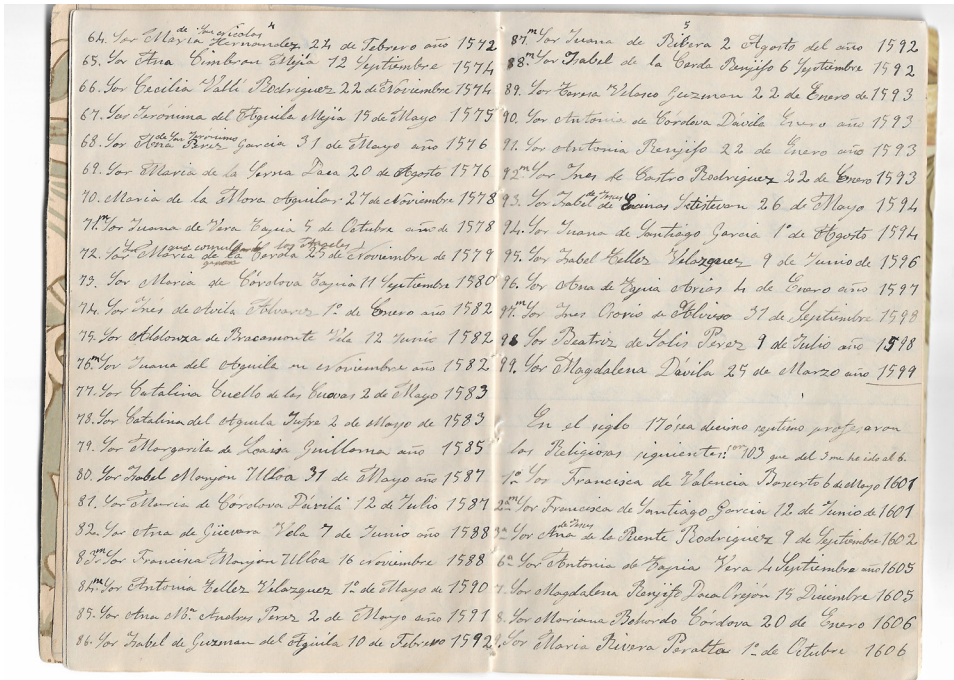 4
de San Nicolas
64. Sor Maria Hernandez 24 de Febrero año 1572
65. Sor Ana Cimbron Mejia 12 Septiembre 1574
66. Sor Cecilia Valli Rodriguez 22 de Noviembre 1574
67. Sor Jerónima del Aguila Mejia 15 de Mayo 1575
de San Jerónimo
68. Sor Ana Perez Garcia 31 de Mayo año 1576
69. Sor Maria de la Serna Daza 20 de Agosto 1576
70. Maria de la Mora Aguilar 27 de Noviembre 1578
71.m Sor Juana de Vera Tapia 5 de Octubre año de 1578
de los Angeles
72. Sor Maria de la Cerda 25 de Noviembre de 1579
73. Sor Maria de Córdova Tapia 11 Septiembre 1580
74. Sor Inés de Avila Alvarez 1º de Enero año 1582
75. Sor Aldonza de Bracamonte Vela 12 Junio 1582
76.m Sor Juana del Aguila en Noviembre año 1582
77. Sor Catalina Cuello de las Cuevas 2 de Mayo 1583
78. Sor Catalina del Aguila 2 de Mayo de 1583
79. Sor Margarita de Loaisa Guillerma año 1585
80. Sor Isabel Monjon Ulloa 31 de Mayo año 1587
81. Sor Maria de Córdova Dávila 12 de Julio 1587
82. Sor Ana de Guevara Vela 7 de Junio año 1588
83.m Sor Francisca Monjon Ulloa 16 Noviembre 1588
84.m Sor Antonia Tellez Velazquez 1º de Mayo de 1590
85. Sor Ana Mª Andres Perez 2 de Mayo año 1591
86. Sor Isabel de Guzman del Aguila 10 de Febrero 1592
5
87.m Sor Juana de Ribera 2 Agosto del año 1592
88.m Sor Isabel de la Cerda Renjifo 6 Septiembre 1592
89. Sor Teresa Velasco Guzman 22 de Enero de 1593
90. Sor Antonia de Córdova Dávila Enero año 1593
91. Sor Antonia Renjifo 22 de Enero año 1593
92.m Sor Ines de Castro Rodriguez 22 de Enero 1593
93. Sor Isabel de 26 de Mayo 1594
94. Sor Juana de Santiago Garcia 1º de Agosto 1594
95. Sor Isabel Tellez Velazquez 9 de Junio de 1596
96. Sor Ana de Tapia Arias 4 de Enero año 1597
97.m Sor Ines Osorio de Alviso 31 de Septiembre 1598
98 Sor Beatriz de Solis Perez 9 de Julio año 1598
99. Sor Magdalena Dávila 25 de Marzo año 1599
En el siglo 17 ó sea decimo septimo profesaron
las Religiosas siguientes: son 103 que del 3 me he ido al 6.
1ª Sor Francisca de Valencia Boscerto 6 de Mayo 1601
2ª m Sor Francisca de Santiago Garcia 12 de Junio de 1601
de Jesus
3ª Sor Ana de la Puente Rodriguez 9 de Septiembre 1602
6ª Sor Antonia de Tapia Vera 4 Septiembre año 1605
7. Sor Magdalena Renjifo Daza Orejón 15 Diciembre 1605
8. Sor Mariana Bohordo Córdova 20 de Enero 1606
9. Sor Maria Rivera Peralta 1º de Octubre 1606